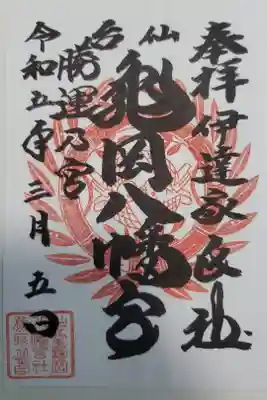 奉拝 伊達家守護社
仙台
亀岡八幡宮
勝運乃宮
令和五年三月五日